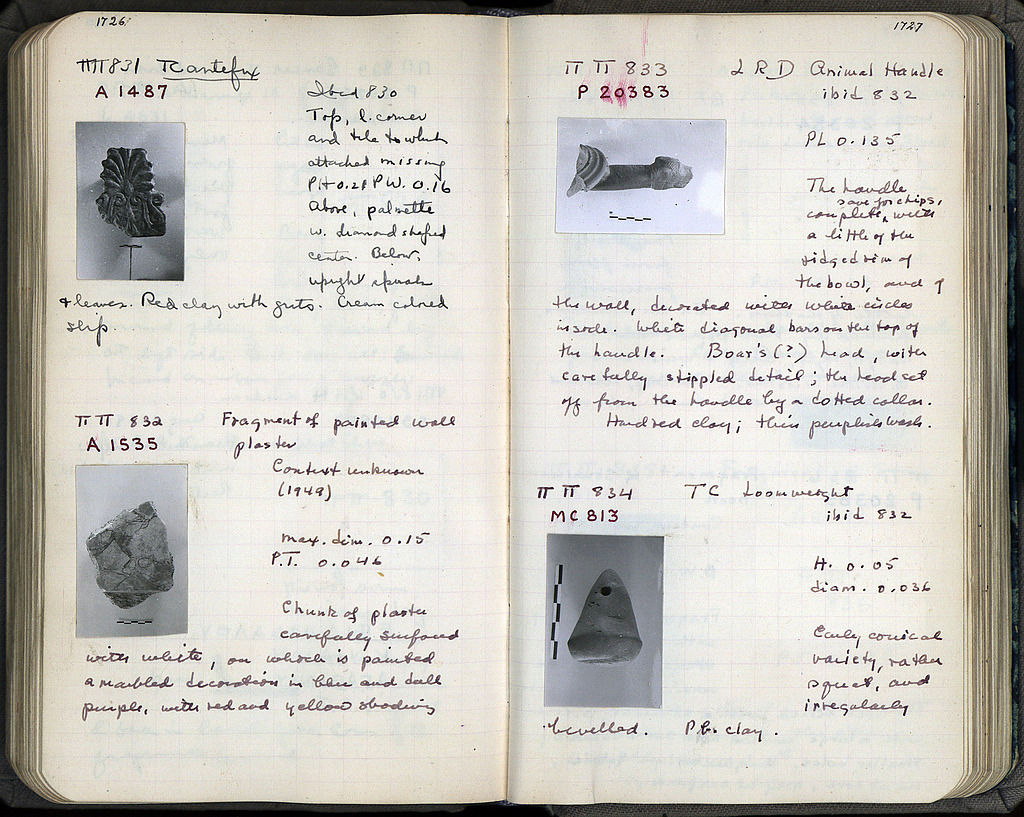 1726
ΠΠ 831 TC antefix
A 1487
Ibid 830
Top, l. corner
and tile to which
attached missing
PH 0.21 PW. 0.16
Above, palmette
w. diamond shaped
center. Below,
upright spirals
& leaves. Red clay with grits. Cream colored
slip.
ΠΠ 832 Fragment of painted wall
A 1535 plaster
Context unknown
(1949)
max. dim. 0.15
P.T. 0.046
Chunk of plaster
carefully surfaced
with white, on which is painted
a marbled decoration in blue and dull
purple, with red and yellow shading
1727
ΠΠ 833 L R D Animal Handle
P 20383 ibid 832
PL 0.135
The handle
save for chips,
complete, with
a little of the
ridged rim of
the bowl, and of
the wall, decorated with white circles
inside. White diagonal bars on the top of
the handle. Boar's (?) head, with
carefully stippled detail; the head set
off from the handle by a dotted collar.
Hard red clay; thin purplish wash.
ΠΠ 834 TC Loomweight
MC 813 ibid 832
H. 0.05
diam. 0.036
Early conical
variety, rather
squat, and
irregularly
bevelled. P.b. clay.